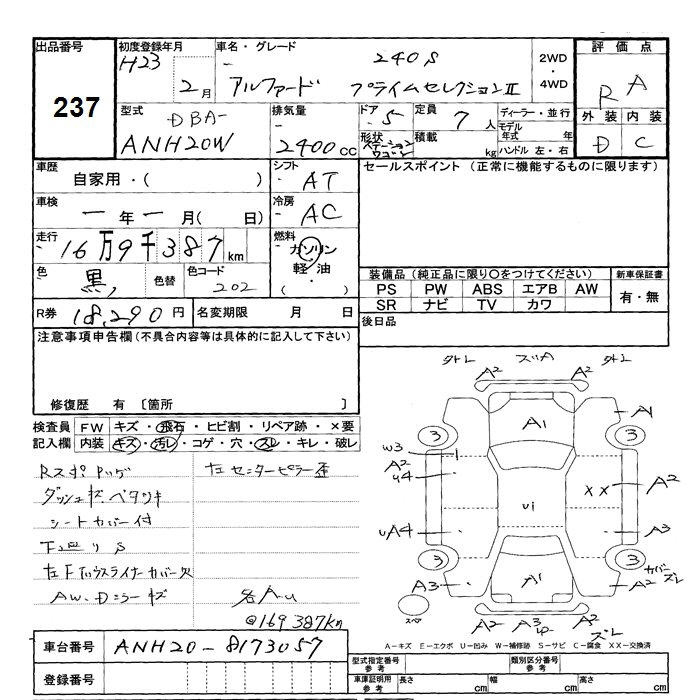 出品番号 初度登録年月 車名・グレード 評価点
237
H23 2月 アルファード 240S プライムセレクションⅡ 2WD・4WD R A
型式 排気量 ドア 定員 ディーラー・並行 外装 内装
DBA-
ANH20W 2400cc 5 7人 モデル年式 年 D C
形状 ステーションワゴン 積載 kg ハンドル 左・右
車歴 シフト セールスポイント (正常に機能するものに限ります)
自家用・( ) AT
車検 冷房
一年一月( 日) AC
走行 燃料
16万9千387km ガソリン
軽油
・
( )
色 黒 色替 色コード 202
装備品 (純正品に限り〇をつけてください) 新車保証書
PS PW ABS エアB AW 有・無
SR ナビ TV カワ
R券 18,290円 名変期限 月 日 後日品
注意事項申告欄 (不具合内容等は具体的に記入して下さい)
修復歴 有 〔箇所 〕
検査員 FW キズ・飛石・ヒビ割・リペア跡・×要
記入欄 内装 キズ・汚レ・コゲ・穴・スレ・キレ・破レ
左センターピラー歪
シートカバー付
下廻りS
左Fインナーライナーカバー欠
AW、Dミラーキズ
各A,U
@169387km
車台番号 ANH20-8173057
登録番号
A2 A2
A1 A1
3 3
W3
A2
U4 XX A2
U1
UA4 A3
3 3
カバーズレ
A3 A1 A2
スペア
A2 A3 A2
ズレ
A-キズ E-エクボ U-凹み W-補修跡 S-サビ C-腐食 XX-交換済
型式指定番号 参考 類別区分番号 参考
車庫証明用 参考 長さ cm 幅 cm 高さ cm